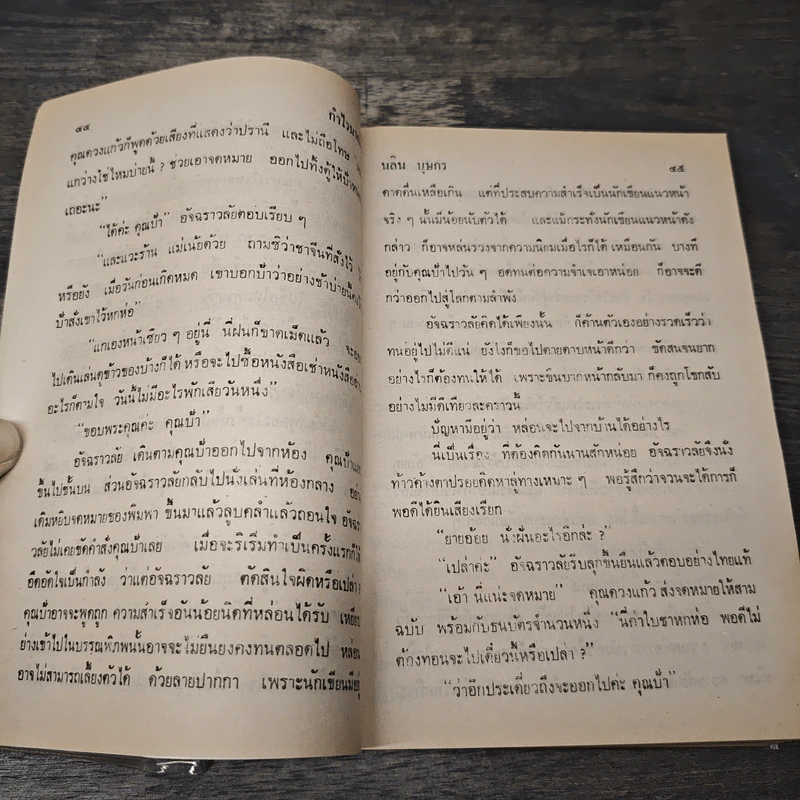 ๔๔
กำไรมา
คุณดวงแก้วก็พูดด้วยเสียงที่แสดงว่าปรานี และไม่ถือโทษ
แกว่างใช่ไหมบ่ายนี้ ? ช่วยเอาจดหมาย ออกไปทิ้งตู้ให้ป้า
เถอะนะ”
“ได้ค่ะ คุณป้า” อัจฉราวลัยตอบเรียบ ๆ
“และแวะร้าน แม่เน้ยด้วย ถามซิว่าชาจีนที่สั่งไว้
หรือยัง เมื่อวันก่อนเกิดหมด เขาบอกป้าว่าอย่างช้าบ่ายนี้
ป้าสั่งเขาไว้หกห่อ”
“แกเองหน้าเซียว ๆ อยู่นี่ นี่ฝนก็ขาดเม็ดแล้ว
ไปเดินเล่นดูข้าวของบ้างก็ได้ หรือจะไปซื้อหนังสือเช่าหนังสืออ่าน
อะไรก็ตามใจ วันนี้ไม่มีอะไรพักเสียวันหนึ่ง”
“ขอบพระคุณค่ะ คุณป้า”
อัจฉราวลัย เดินตามคุณป้าออกไปจากห้อง คุณป้า
ขึ้นไปชั้นบน ส่วนอัจฉราวลัยกลับไปนั่งเล่นที่ห้องกลาง
เดิมหยิบจดหมายของพิมพา ขึ้นมาแล้วลูบคลำแล้วถอนใจ อัจฉรา
วลัยไม่เคยขัดคำสั่งคุณป้าเลย เมื่อจะริเริ่มทำเป็นครั้งแรกก็ให้
อึดอัดใจเป็นกำลัง ว่าแต่อัจฉราวลัย ตัดสินใจผิดหรือเปล่า ?
คุณป้าอาจจะพูดถูก ความสำเร็จอันน้อยนิดที่หล่อนได้รับ เหยียบ
ย่างเข้าไปในบรรณพิภพนั้นอาจจะไม่ยืนยงคงทนตลอดไป หล่อน
อาจไม่สามารถเลี้ยงตัวได้ ด้วยลายปากกา เพราะนักเขียนมีอยู่
นลิน บุษกร
๔๕
ดาดดื่นเหลือเกิน แต่ที่ประสบความสำเร็จเป็นนักเขียนแนวหน้า
จริง ๆ นั้นมีน้อยนับตัวได้ และแม้กระทั่งนักเขียนแนวหน้าดัง
กล่าว ก็อาจหล่นร่วงจากความนิยมเมื่อไรก็ได้ เหมือนกัน บางที
อยู่กับคุณป้าไปวัน ๆ อดทนต่อความจำเจเอาหน่อย ก็อาจจะดี
กว่าออกไปสู่โลกตามลำพัง
อัจฉราวลัยคิดได้เพียงนั้น ก็ค้านตัวเองอย่างรวดเร็วว่า
ทนอยู่ไปไม่ดีแน่ ยังไงก็ขอไปตายดาบหน้าดีกว่า ขัดสนจนยาก
อย่างไรก็ต้องทนให้ได้ เพราะขืนบากหน้ากลับมา ก็คงถูกโขกสับ
อย่างไม่มีดีเทียวละคราวนี้
ปัญหามีอยู่ว่า หล่อนจะไปจากบ้านได้อย่างไร
นี่เป็นเรื่อง ที่ต้องคิดกันนานสักหน่อย อัจฉราวลัยจึงนั่ง
ท้าวคางตาปรอยคิดหาลู่ทางเหมาะ ๆ พอรู้สึกว่าจวนจะได้การก็
พอดีได้ยินเสียงเรียก
“ยายอ้อย นั่งฝันอะไรอีกล่ะ ?”
“เปล่าค่ะ” อัจฉราวลัยรีบลุกขึ้นยืนแล้วตอบอย่างไทยแท้
“เอ้า นี่แน่ะจดหมาย” คุณดวงแก้ว ส่งจดหมายให้สาม
ฉบับ พร้อมกับธนบัตรจำนวนหนึ่ง “นี่ค่าใบชาหกห่อ พอดีไม่
ต้องทอนจะไปเดี๋ยวนี้หรือเปล่า ?”
“ว่าอีกประเดี๋ยวถึงจะออกไปค่ะ คุณป้า”